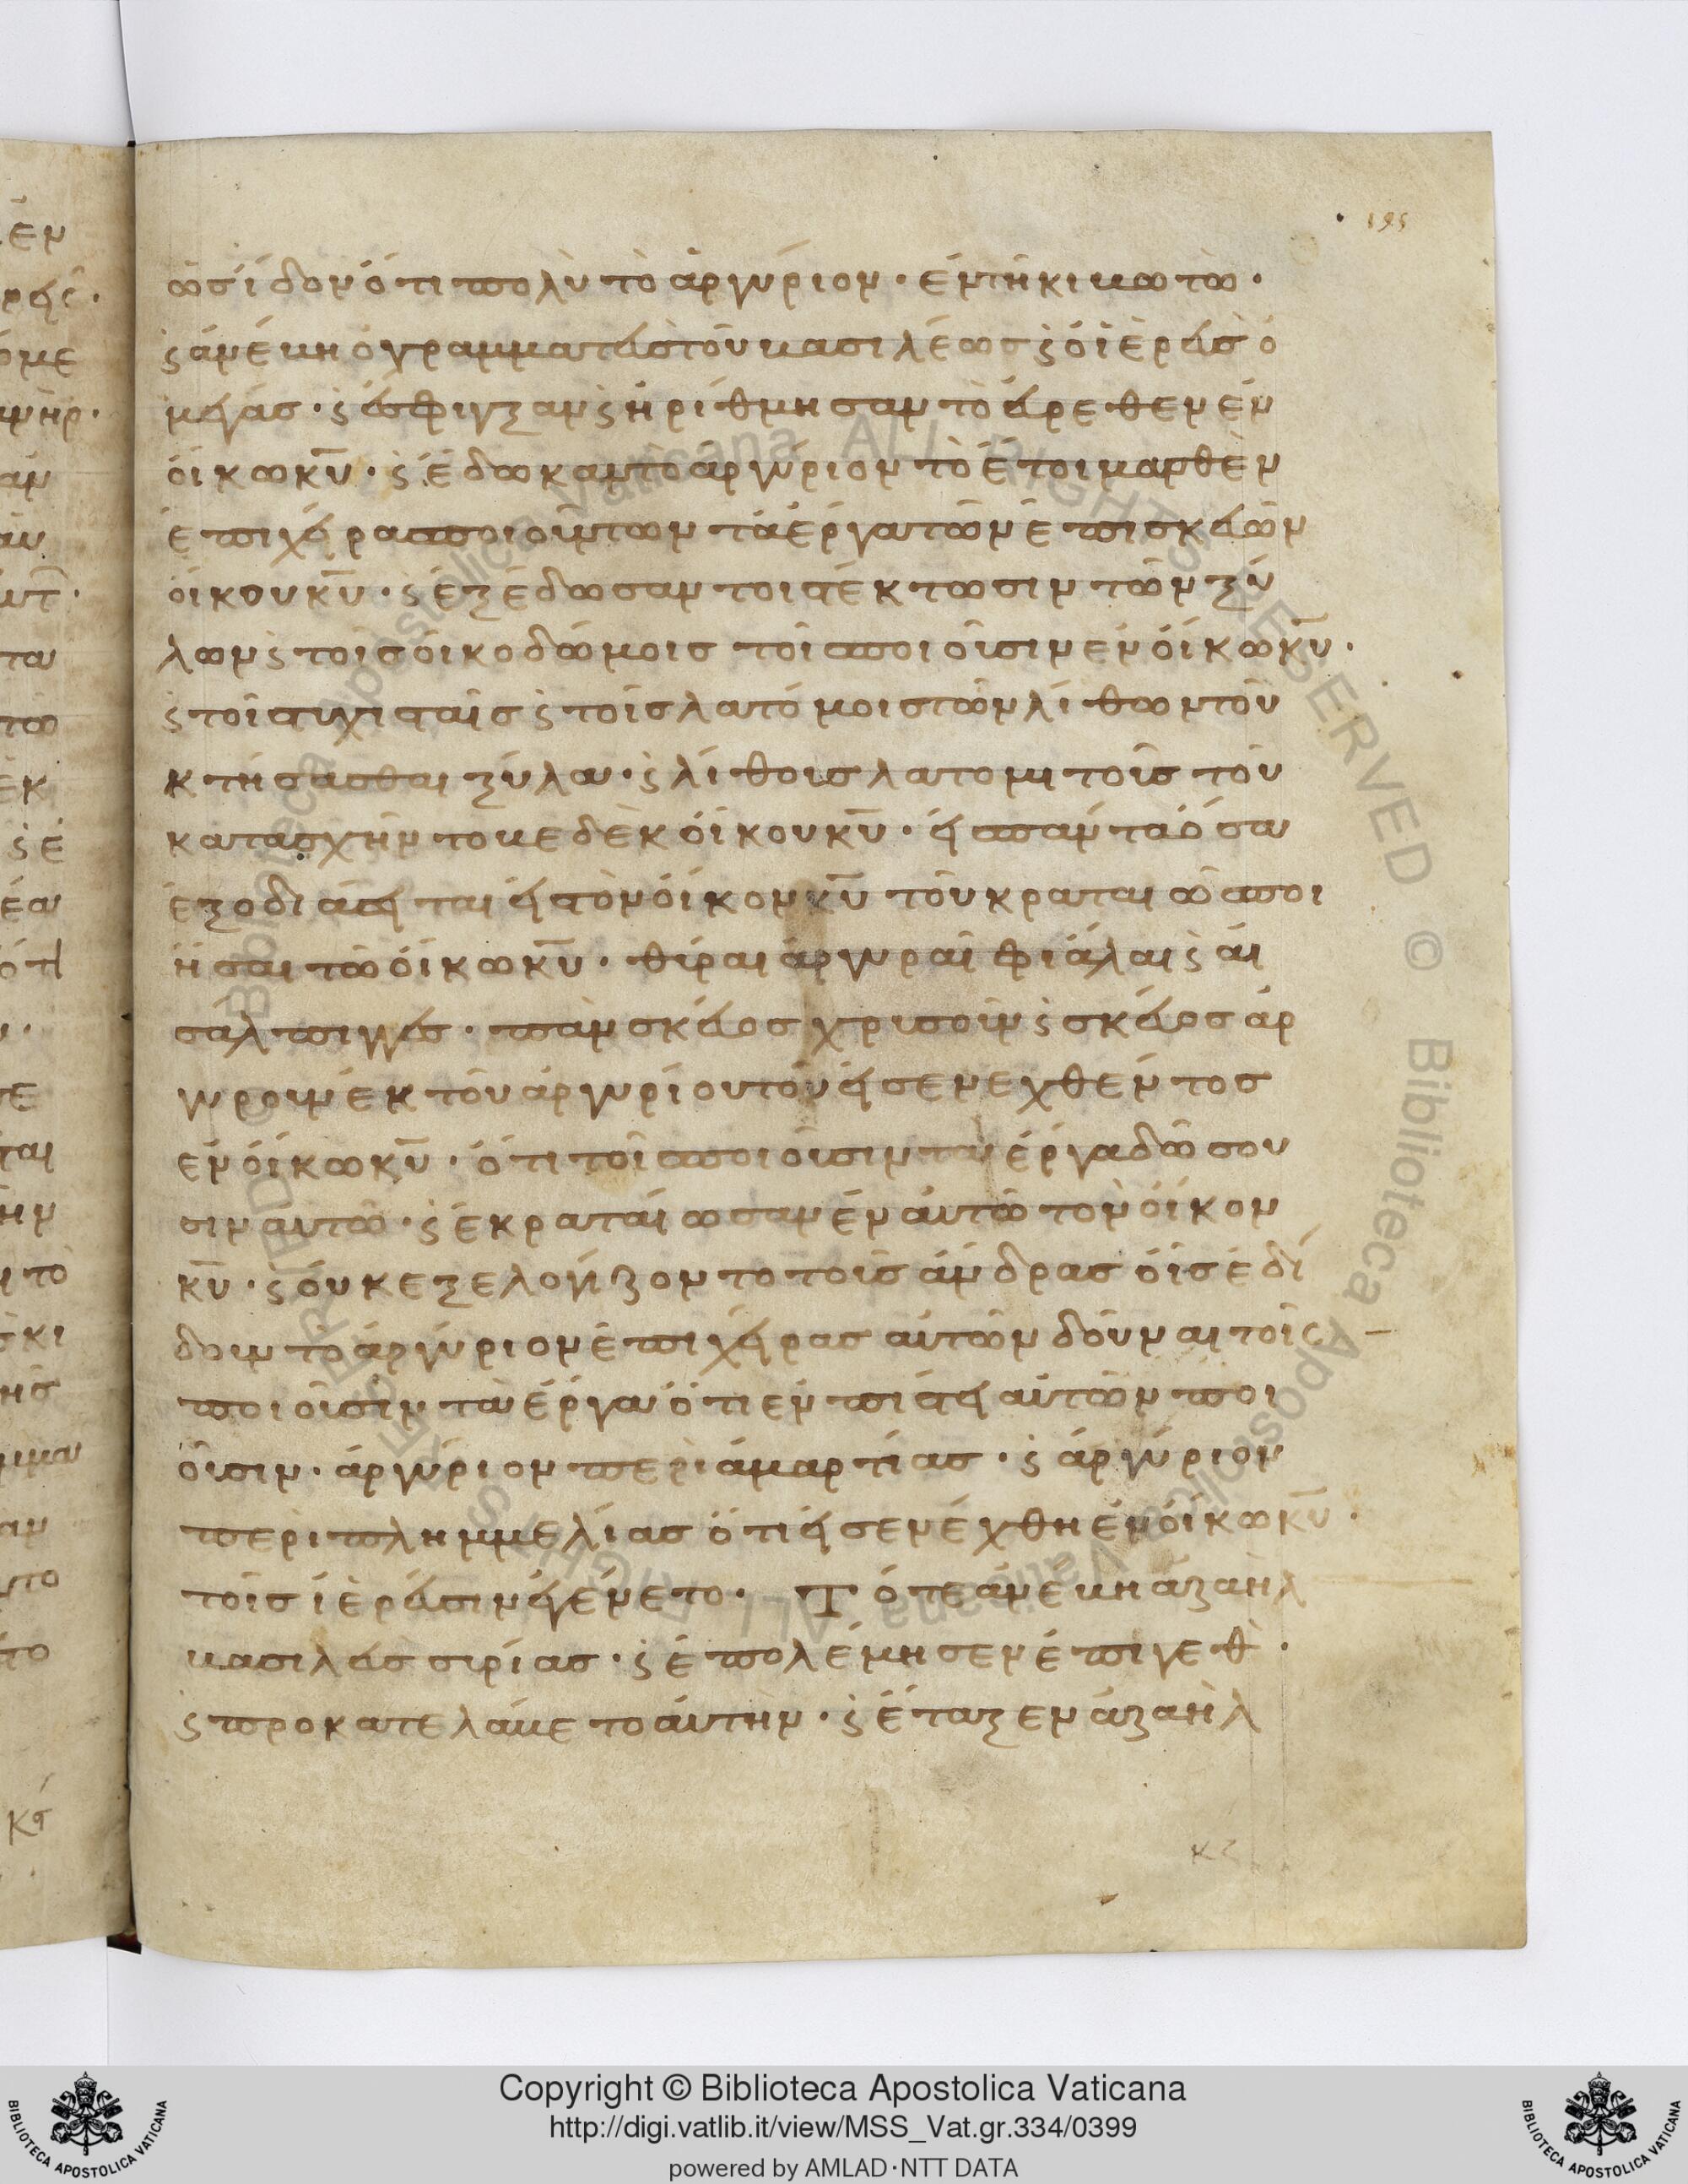 195
ὡς ίδον ότι πολὺ τὸ ἀργύριον · εν τῆ κιβωτῶ ·
ϛ ἀνέβη ὁ γραμματεὺς τοῦ βασιλέως ϛ ὁ ἱερεὺς ὁ
μέγας · ϛ έσφιγξαν ϛ ἠρίθμησαν τὸ εὑρεθεν ἐν
οίκω κ̅υ̅ · ϛ έδωκαν τὸ ἀργύριον τὸ ἑτοιμασθὲν
ἐπι χεῖρα ποιούντων τὰ έργα τῶν ἐπισκέων
οίκου κ̅υ̅ · ϛ ἐξέδωσαν τοις τέκτωσιν τῶν ξύ
λων ϛ τοῖς οἰκοδώμοις τοῖς ποιοῦσιν εν οίκω κ̅υ̅ ·
ϛ τοῖς τιχισταῖς ϛ τοῖς λατόμοις τῶν λίθων τοῦ
κτήσασθαι ξύλα · ϛ λίθους λατομητοῖς τοῦ
κατασχῆν το βεδὲκ οίκου κ̅υ̅ · εἰ πάντα ὅσα
ἐξοδιάσθηται εἰς τὸν οίκον κ̅υ̅ τοῦ κραταιῶ ποι
ῆσαι τῶ οίκω κ̅υ̅ · θύραι ἀργυραῖ φιάλαι ϛ αι
σάλπιγγες · πὰν σκεύος χρυσοῦν ϛ σκεύος ἀρ
γυρουν ἐκ τοῦ ἀργυρίου τοῦ εἰσενεχθέντος
εν οίκω κ̅υ̅ · ότι τοῖς ποιοῦσιν τα έργα δώσου
σιν αυτῶ · ϛ ἐκραταίωσαν ἐν αὐτῶ τὸν οίκον
κ̅υ̅ · ϛ οὐκ εξελογίζοντο τοῖς άνδρας οἷς ἐδί
δουν τὸ ἀργύριον ἐπι χεῖρας αὐτῶν δοῦναι τοῖς
ποιοῦσιν τὰ έργα ὅτι εν πίστει αὐτῶν ποι
οῦσιν · ἀργύριον περὶ ἁμαρτίας · ϛ ἀργύριον
περι πλημμελίας ὅτι εἰσενέχθη ἐν οίκω κ̅υ̅ ·
τοῖς ἱερεύσιν ἐγένετο · Τότε ἀνεβη ἀζαὴλ
βασιλεὺς συρίας · ϛ ἐπολέμησεν ἐπι γεθ ·
ϛ προκατελάβετο αὐτὴν · ϛ έταξεν ἀζαὴλ
κζ
Copyright © Biblioteca Apostolica Vaticana
http://digi.vatlib.it/view/MSS_Vat.gr.334/0399
powered by AMLAD·NTT DATA
BIBLIOTECA APOSTOLICA VATICANA
BIBLIOTECA APOSTOLICA VATICANA